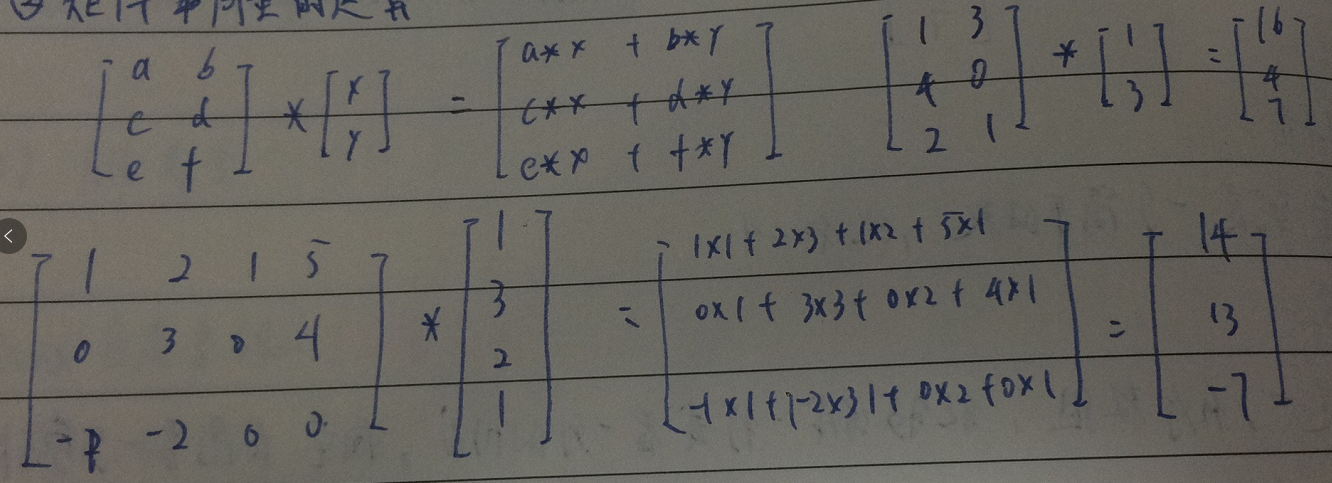 ③ 矩阵和向量的运算
[a b; c d; e f] * [x; y] = [a*x + b*y; c*x + d*y; e*x + f*y]
[1 3; 4 0; 2 1] * [1; 3] = [16; 4; 7]
[1 2 1 5; 0 3 0 4; -1 -2 0 0] * [1; 3; 2; 1] = [1×1+2×3+1×2+5×1; 0×1+3×3+0×2+4×1; -1×1+(-2×3)+0×2+0×1] = [14; 13; -7]